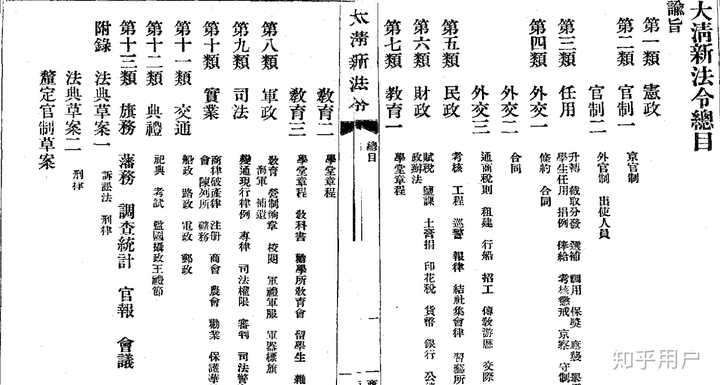 大淸新法令總目
諭旨
第一類 憲政
第二類 官制一 京官制
官制二 外官制 出使人員
第三類 任用 升補 截取分發 選補 調用 保奬 蔭襲
學生任用 捐例 俸給 考核懲戒 京察 守制
第四類 外交一 條約 合同
外交二 合同
外交三 通商稅則 租建 行船 招工 傳敎游歷 交際
第五類 民政 考核 工程 巡警 報律 結社集會律 習藝所
第六類 財政 賦稅 鹽課 土膏捐 印花稅 貨幣 銀行
政辦法
第七類 敎育一 學堂章程
大淸新法令
總目
一
敎育二 學堂章程
敎育三 學堂章程 敎科書 勸學所敎育會 留學生
第八類 軍政 敎育 營制餉章 校閱 軍禮軍服 軍器標旗
海軍 補遺
第九類 司法 變通現行律例 專律 司法權限 審判 司法警
第十類 實業 商律破產律 注冊 商會 農會 勸業 保護
會 陳列所 礦務
第十一類 交通 船政 路政 電政 郵政
第十二類 典禮 祀典 考試 監國攝政王禮節
第十三類 旗務 藩務 調查統計 官報 會議
附錄 法典草案一 訴訟法 刑律
法典草案二 刑律
釐定官制草案
知乎用户